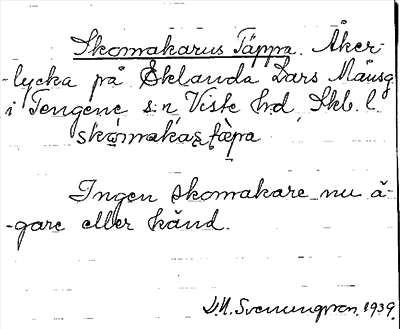 Skomakarus Täppa. Åker-
-lycka på Eklanda Lars Månsg
i Tengene s:n, Viste hd, Skb. l.
skomakas täpa
Ingen skomakare nu ä-
-gare eller känd.
D.N. Svenungsson, 1939.